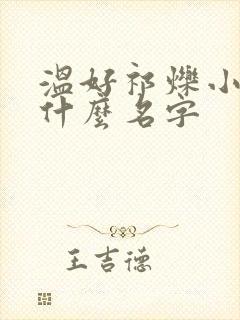 溫好祁爍小
什麼名字
王吉德